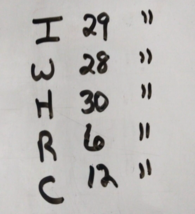 I 29 "
W 28 "
H 30 "
R 6 "
C 12 "